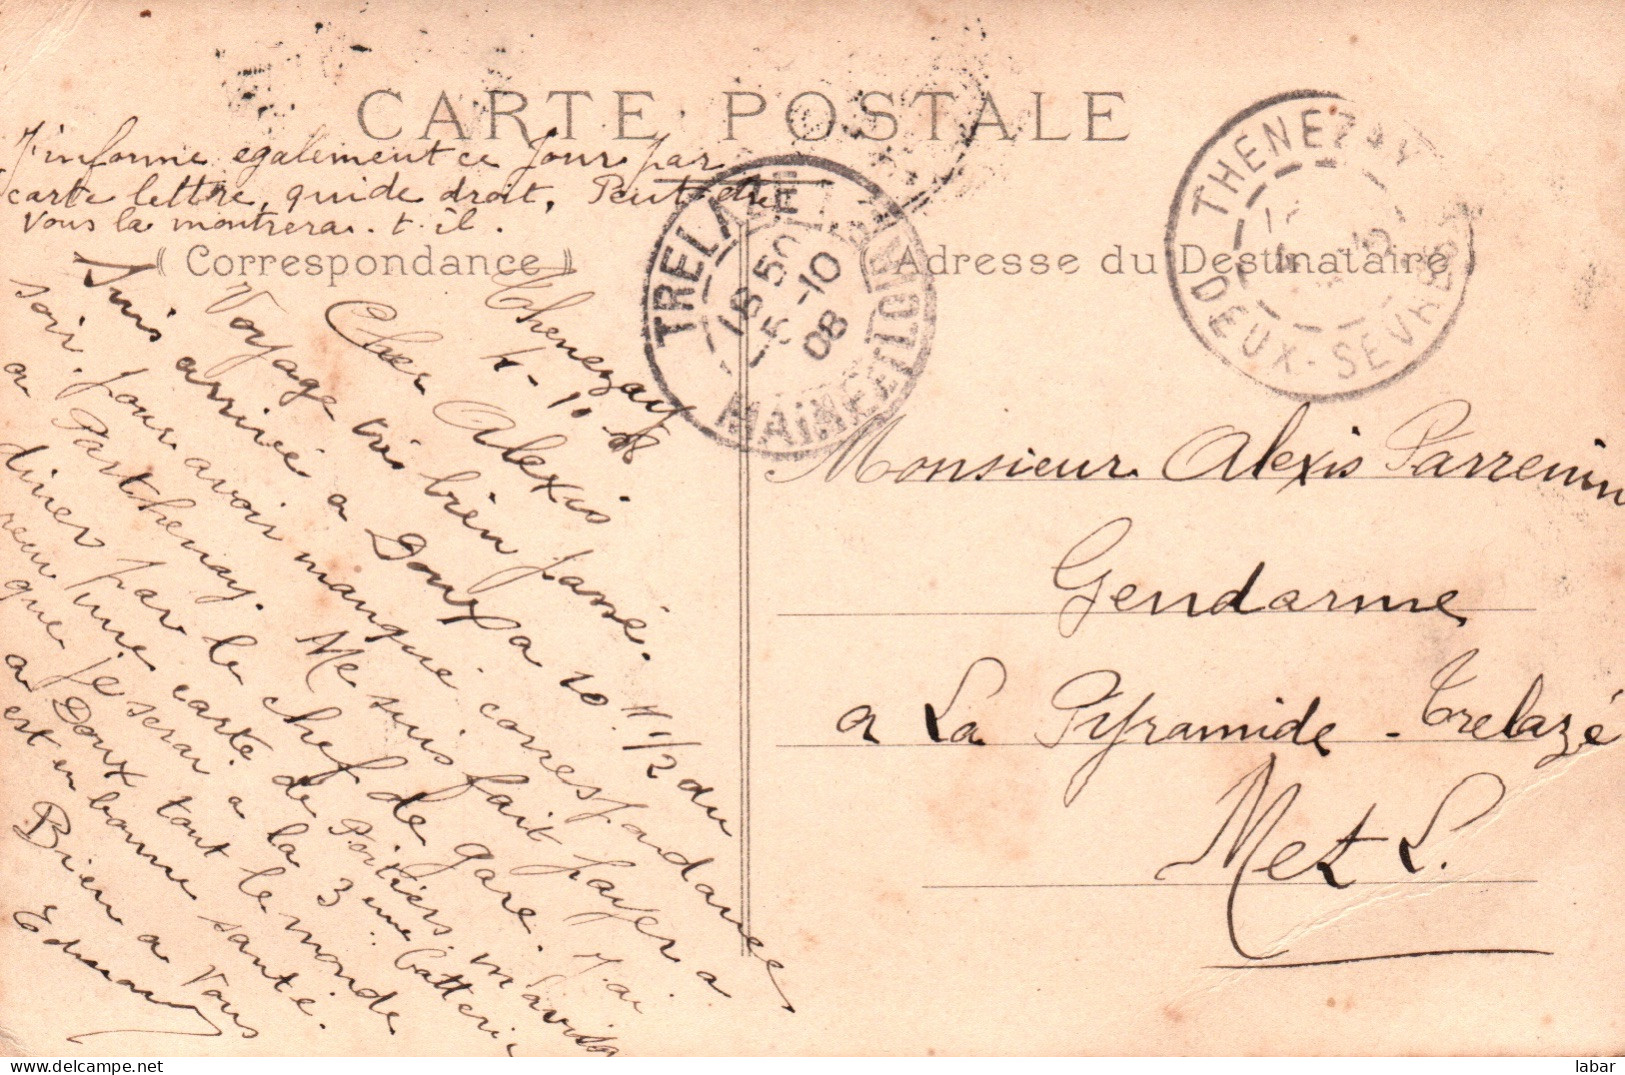 CARTE POSTALE
J'informe egalement ce jour par
carte lettre, guide droit. Peut etre
vous la montrera. t. il.
« Correspondance »
Adresse du Destinataire
Thenezay
4-10-08
Cher Alexis
Voyage très bien passé.
Suis arrivé a Doux a 10 h 1/2 du
soir, pour avoir manqué correspondance
a Parthenay. Me suis fait payer a
diner par le chef de gare. J'ai
recu une carte de Poitiers m'avisa
que je serai a la 3eme batterie
a Doux tout le monde
est en bonne santé.
Bien a Vous
THENEZAY
DEUX-SEVRES
TRELAZE
18 50
5-10
08
MAINE-ET-LOIRE
Monsieur Alexis Parrenin
Gendarme
a La Pyramide - Trelazé
M et L.
labar